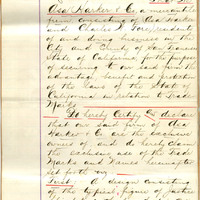 Asa Harker & Co. a mercantile
firm consisting of Asa Harker
and Charles
of and doing business in the
City and County of San Francisco
State of California, for the purpose
of securing to our said firm the
advantage benefit and protection
of the Laws of the State of
California in relation to Trade
Marks
Do hereby Certify and declare
that our said firm of Asa
Harker & Co. are the exclusive
owners of and do hereby claim
the exclusive use of the Trade
Marks and Names hereinafter
set forth viz:
First. A design consisting
of the typical figure of Justice